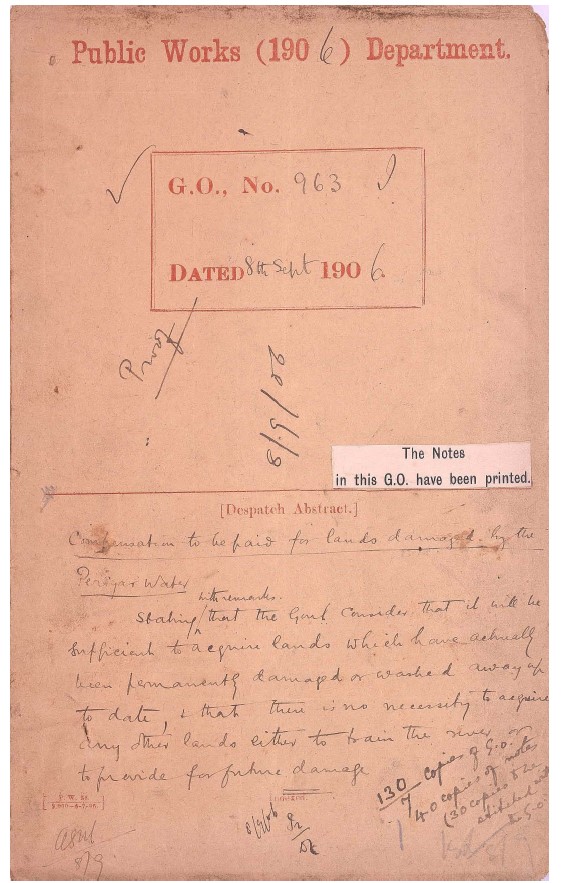 Public Works (1906) Department.
G.O., No. 963
DATED 8th Sept 1906.
Proof
8/9/06
The Notes
in this G.O. have been printed.
[Despatch Abstract.]
Compensation to be paid for lands damaged by the
Periyar Water
with remarks.
Stating that the Govt. Consider that it will be
sufficient to acquire lands which have actually
been permanently damaged or washed away up
to date, & that there is no necessity to acquire
any other lands either to train the river or
to provide for future damage
130 copies of G.O. &
40 copies of notes
(30 copies to be
stitched with
the G.O.
P. W. 82
8/9/06
8/9